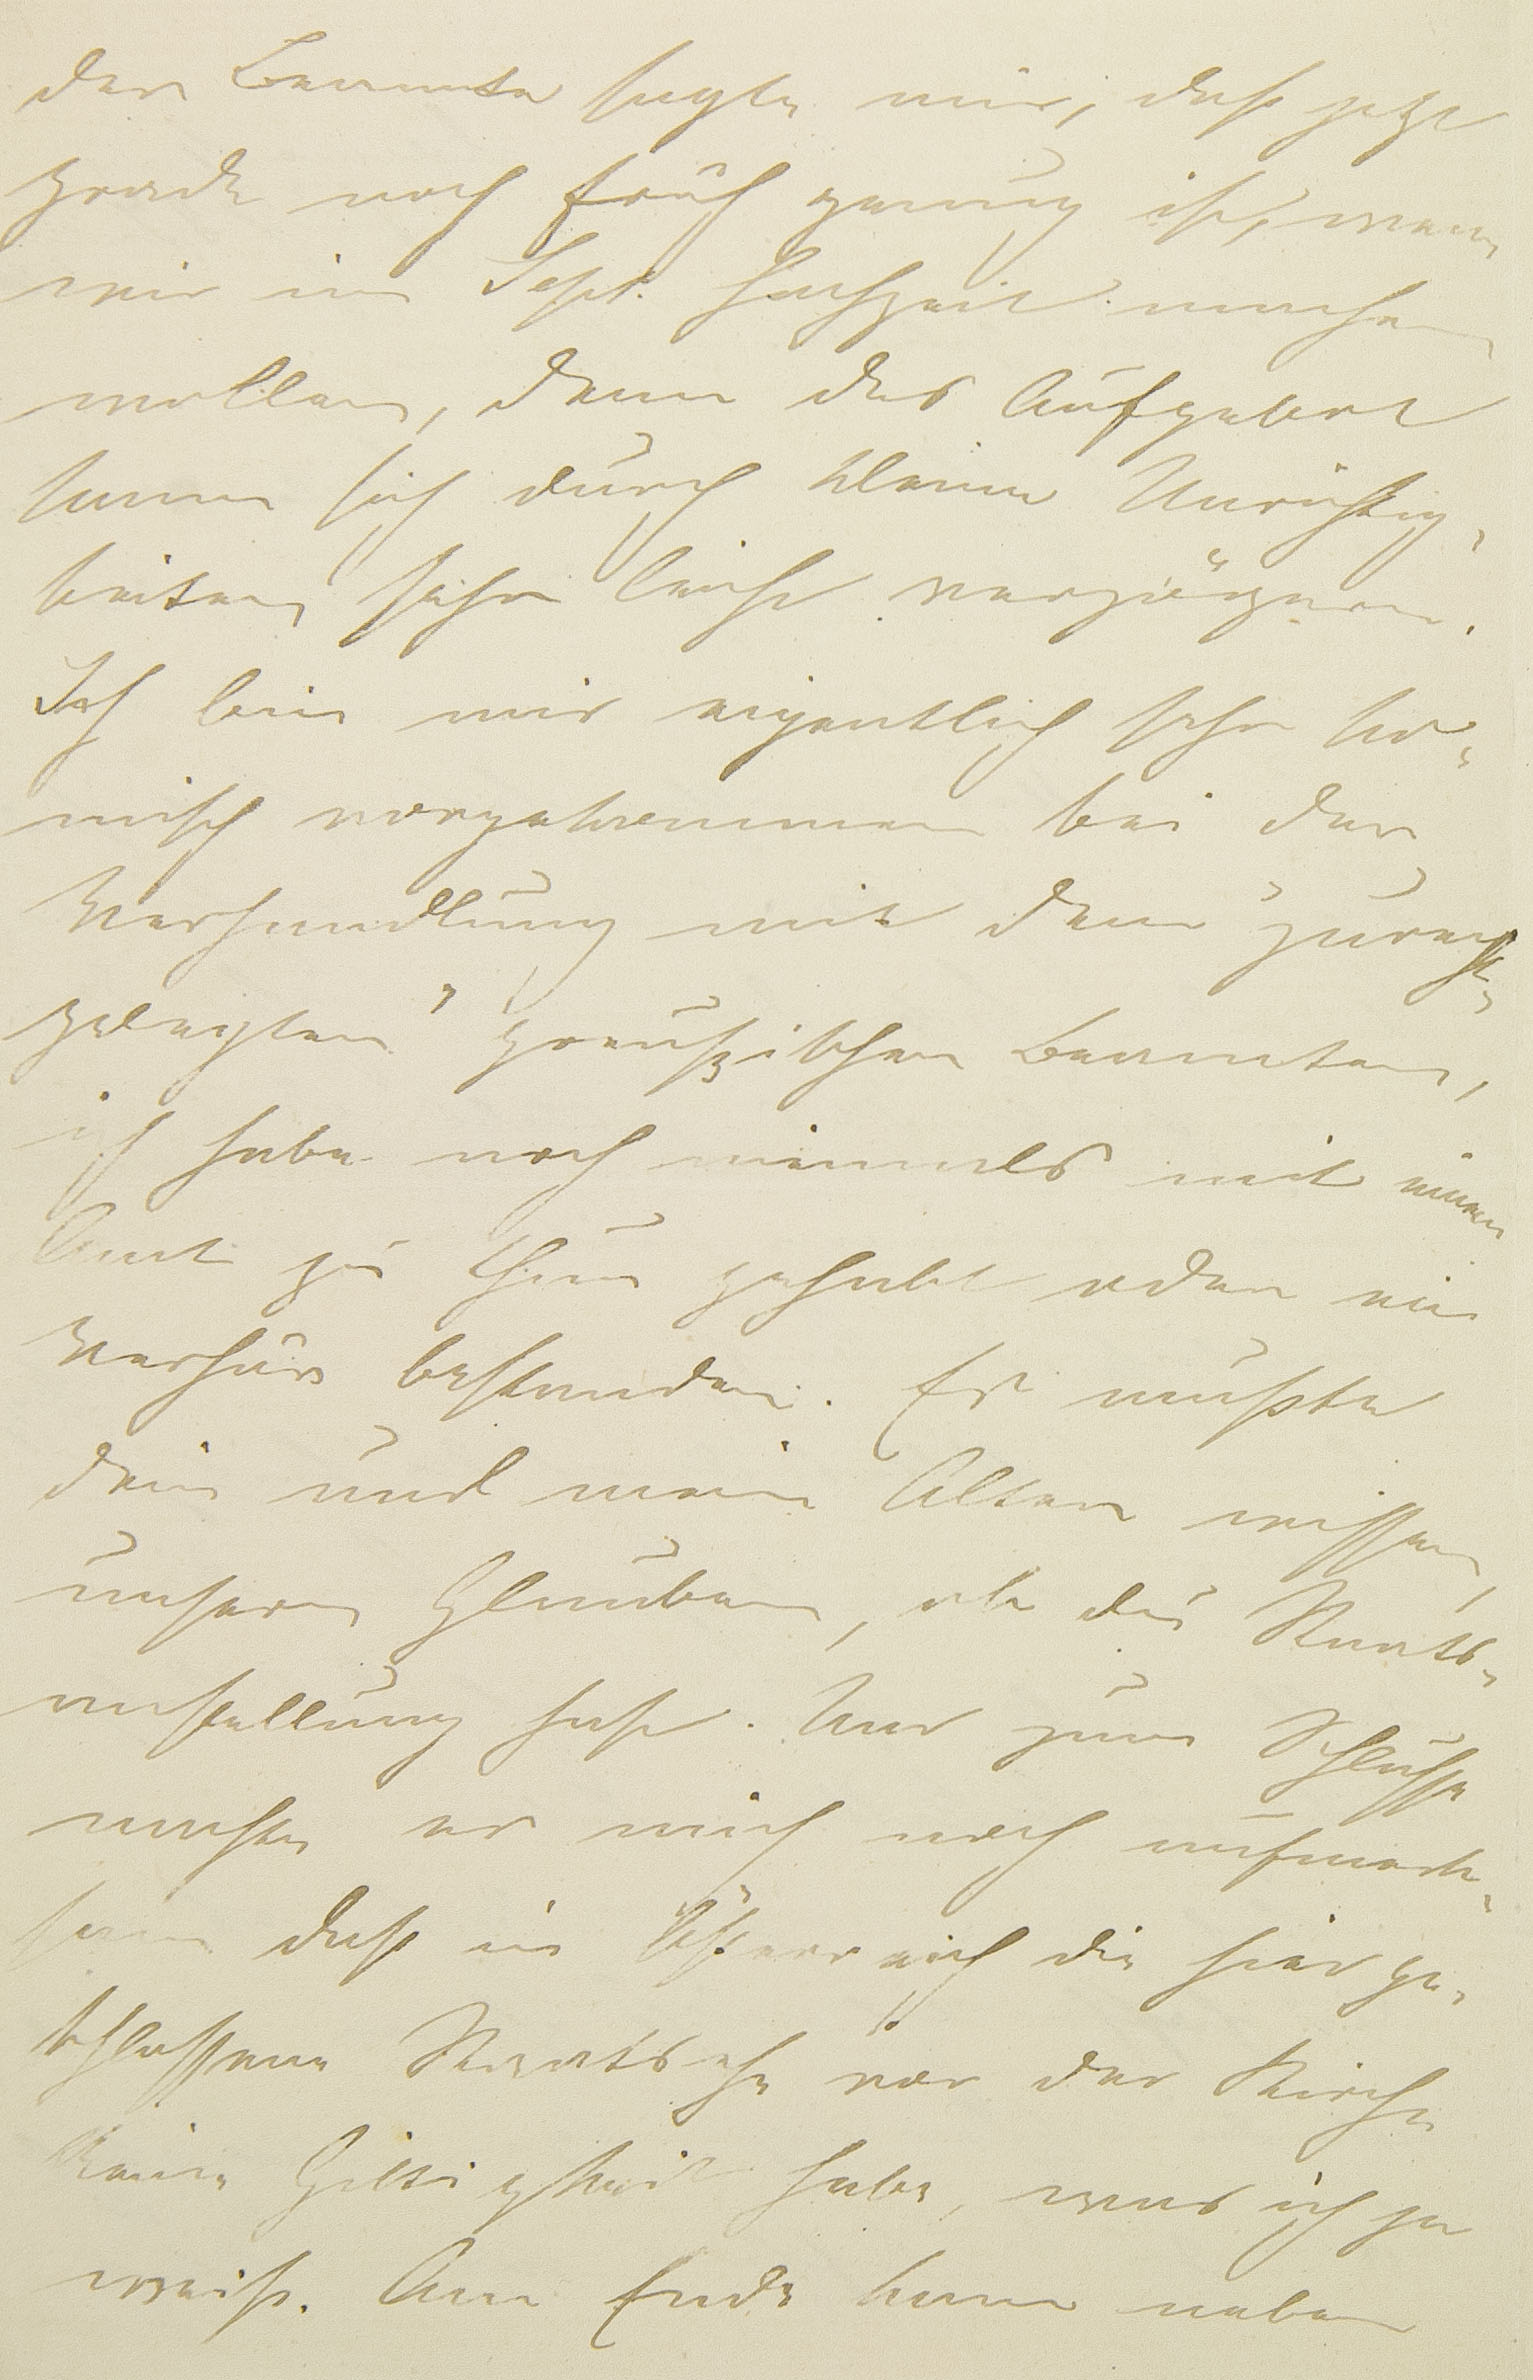 der Beamte sagte mir, daß jetzt
grade noch früh genug ist, wenn
wir im Sept. Hochzeit machen
wollen, denn das Aufgebot
kann sich durch kleine Unrichtig-
keiten sehr leicht verzögern.
Ich bin mir eigentlich sehr ko-
misch vorgekommen bei der
Verhandlung mit dem „zurecht-
gelegten" preußischen Beamten,
ich habe noch niemals mit einem
Amt zu thun gehabt oder ein
Verhör bestanden. Er mußte
dein und mein Alter wissen,
unsern Glauben, ob du Staats-
anstellung hast. Nur zum Schlusse
machte er mich noch aufmerk-
sam daß in Österreich die hier ge-
schlossene Staatsehe vor der Kirche
keine Giltigkeit habe, was ich ja
weiß. Am Ende kam neben